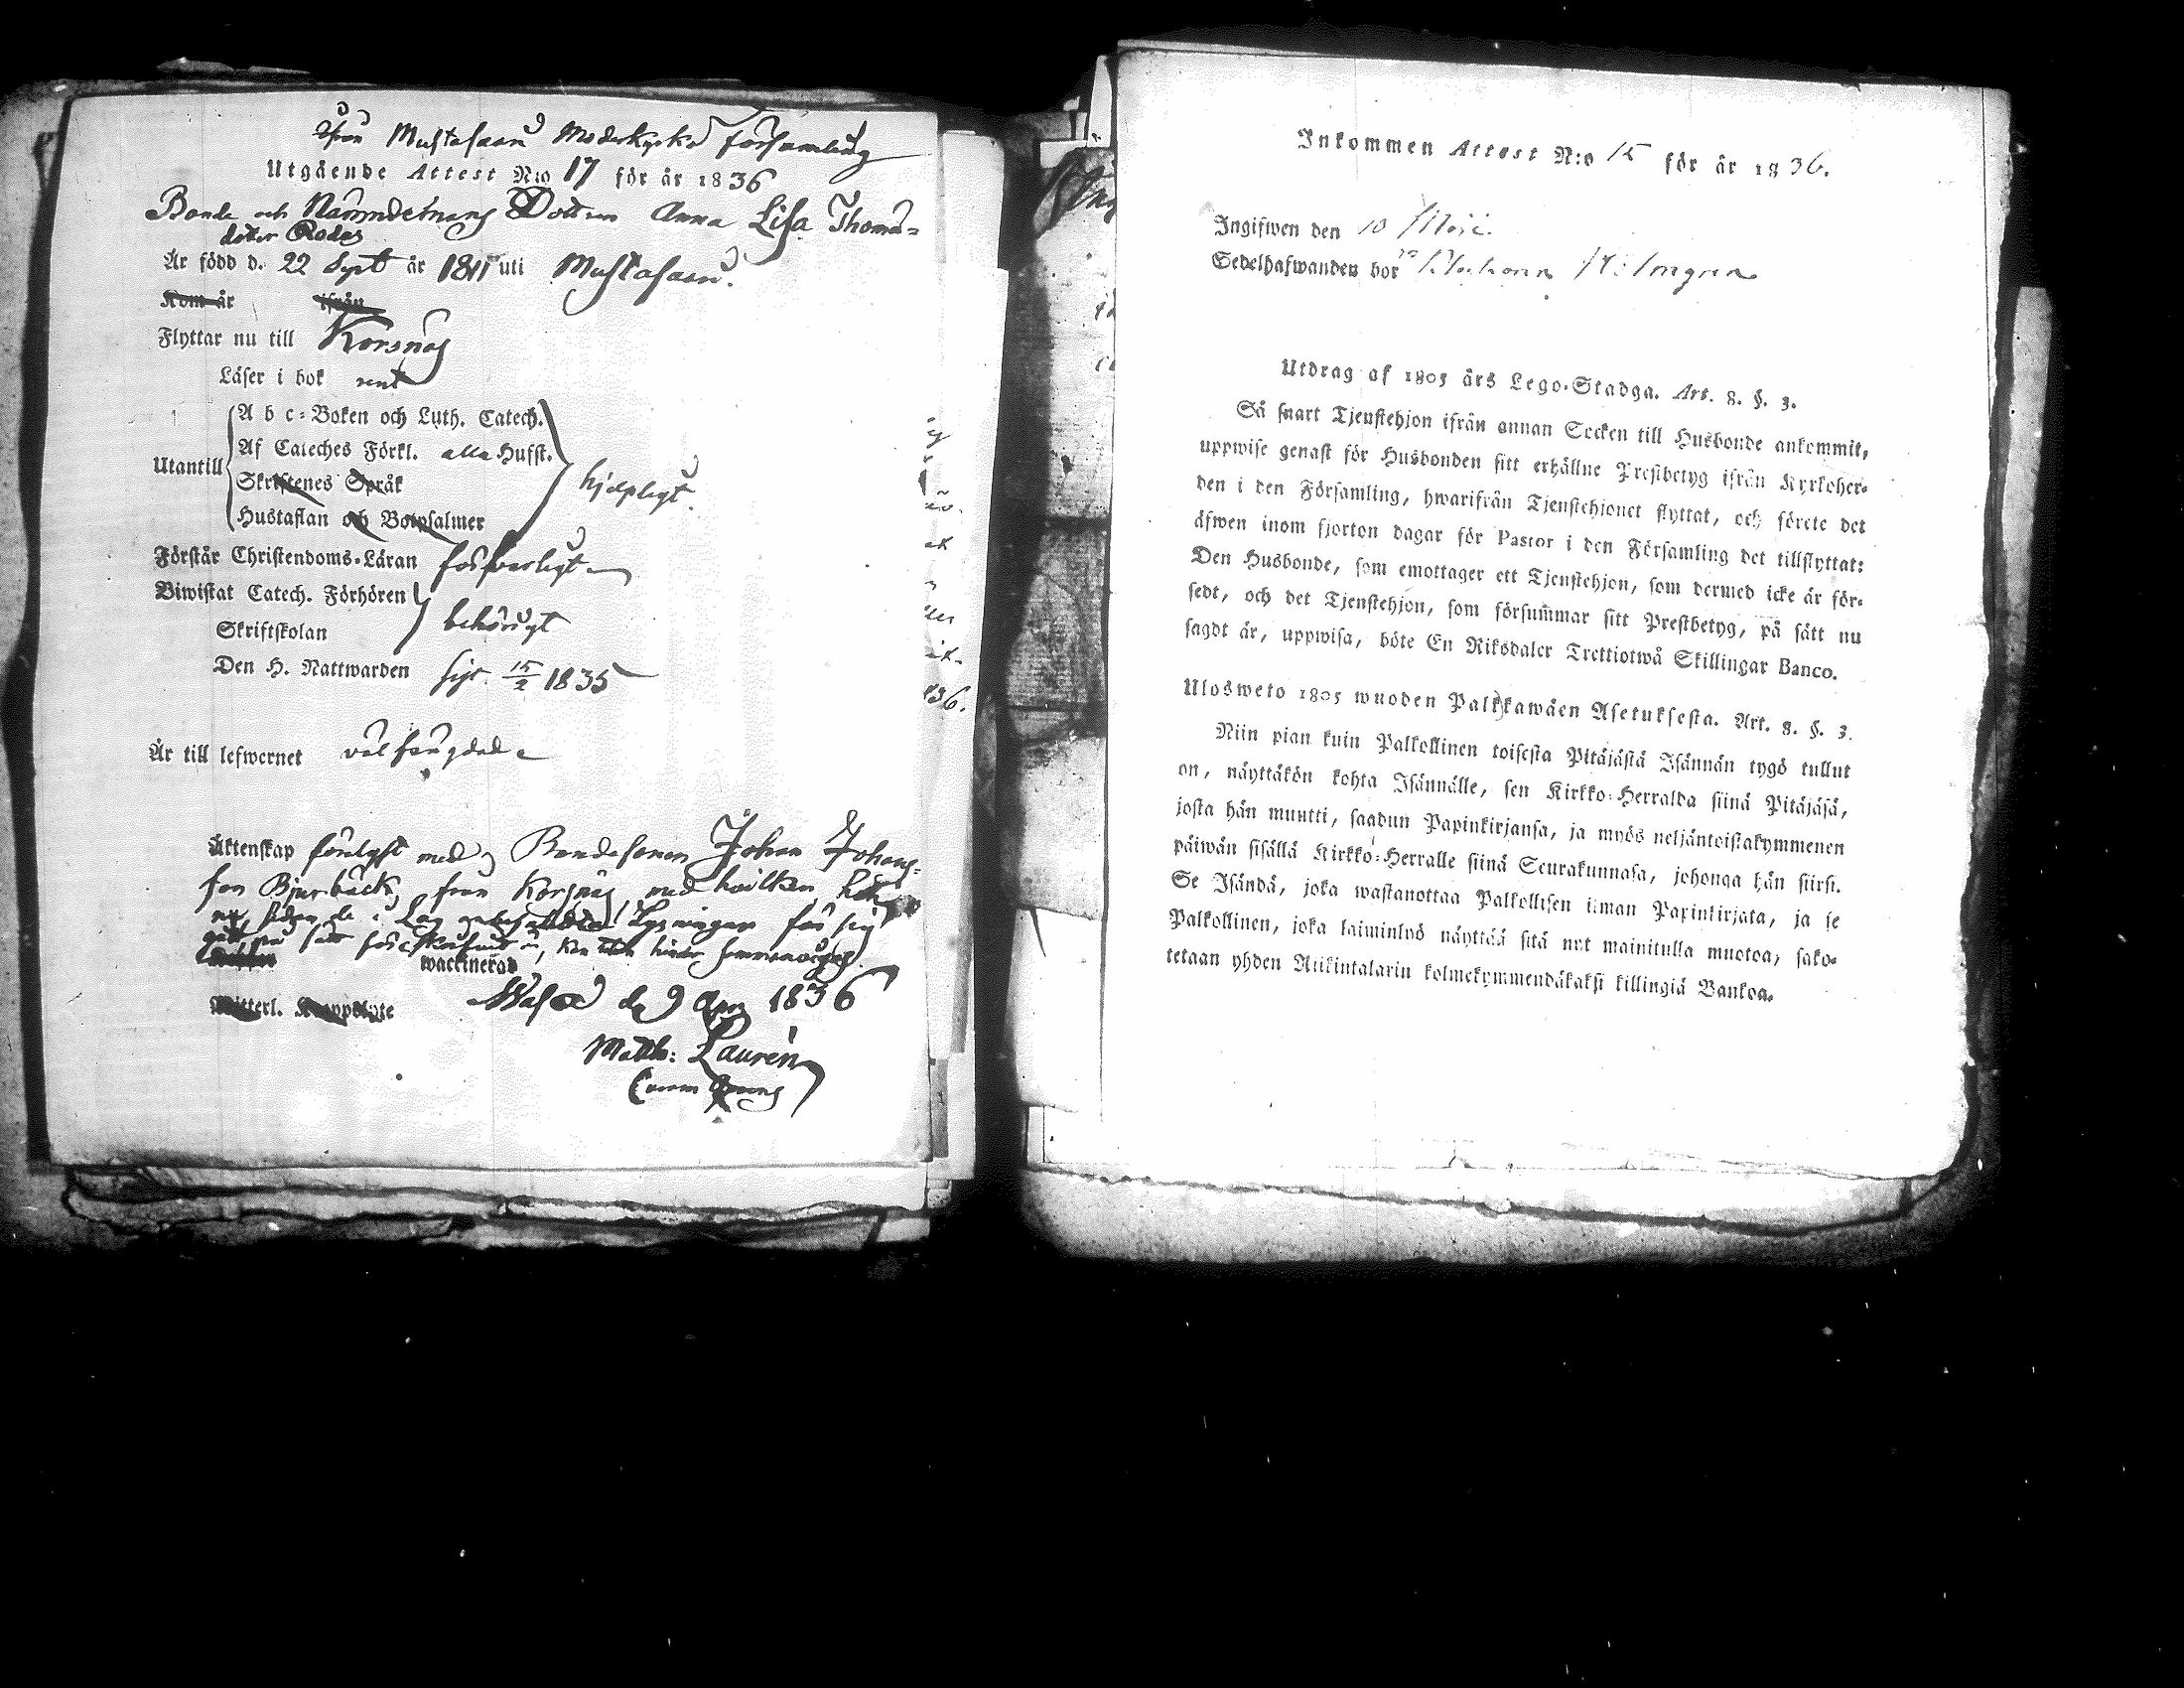 Från Mustasaari Moderkyrko församling
Utgående Attest N:o 17 för år 1836
Bonde och Nämndemans Dottren Anna Lisa Thoms=
dotter Rodas
Är född d. 22 Sept år 1811 uti Mustasaari.
Kom år ifrån
Flyttar nu till Korsnäs
Läser i bok rent
A b c=Boken och Luth. Catech.
Af Cateches Förkl. alla Husst.
Utantill
Skriftenes Språk
hjelpligt.
Hustaflan och Botpsalmer
Förstår Christendoms=Läran försvarligt
Biwistat Catech. Förhören
behörigt
Skriftskolan
Den H. Nattwarden sist 15/2 1835
Är till lefwernet väl fängdad
Äktenskap förelyst med Bondesonen Johan Johans=
son Bjurbäck, från Korsnäs, med hvilken hon
nu, sedan de i Lag Lysningar för sig
gått, på sätt
wackinerad
Ritterl. Koppslyte
Wasa d. 9 Apr 1836
Matth: Laurén
Inkommen Attest N:o 15 för år 1836.
Ingifwen den 10 Maji.
Sedelhafwanden bor
Utdrag af 1805 års Lego=Stadga. Art. 8. §. 3.
Så snart Tjenstehjon ifrån annan Socken till Husbonde ankommit,
uppwise genast för Husbonden sitt erhållne Prestbetyg ifrån Kyrkoher=
den i den Församling, hwarifrån Tjenstehjonet flyttat, och förete det
äfwen inom fjorton dagar för Pastor i den Församling det tillflyttat:
Den Husbonde, som emottager ett Tjenstehjon, som dermed icke är för=
sedt, och det Tjenstehjon, som försummar sitt Prestbetyg, på sätt nu
sagdt är, uppwisa, böte En Riksdaler Trettiotwå Skillingar Banco.
Ulosweto 1805 wuoden Palkkawäen Asetuksesta. Art. 8. §. 3.
Niin pian kuin Palkollinen toisesta Pitäjästä Isännän tygö tullut
on, näyttäkön kohta Isännälle, sen Kirkko=Herralda siinä Pitäjäsä,
josta hän muutti, saadun Papinkirjansa, ja myös neljäntoistakymmenen
päiwän sisällä Kirkko=Herralle siinä Seurakunnasa, johonga hän siirsi.
Se Isändä, joka wastanottaa Palkollisen ilman Papinkirjata, ja se
Palkollinen, joka laiminlyö näyttää sitä nyt mainitulla muotoa, sako=
tetaan yhden Riikintalarin kolmekymmendäkaksi killingiä Bankoa.